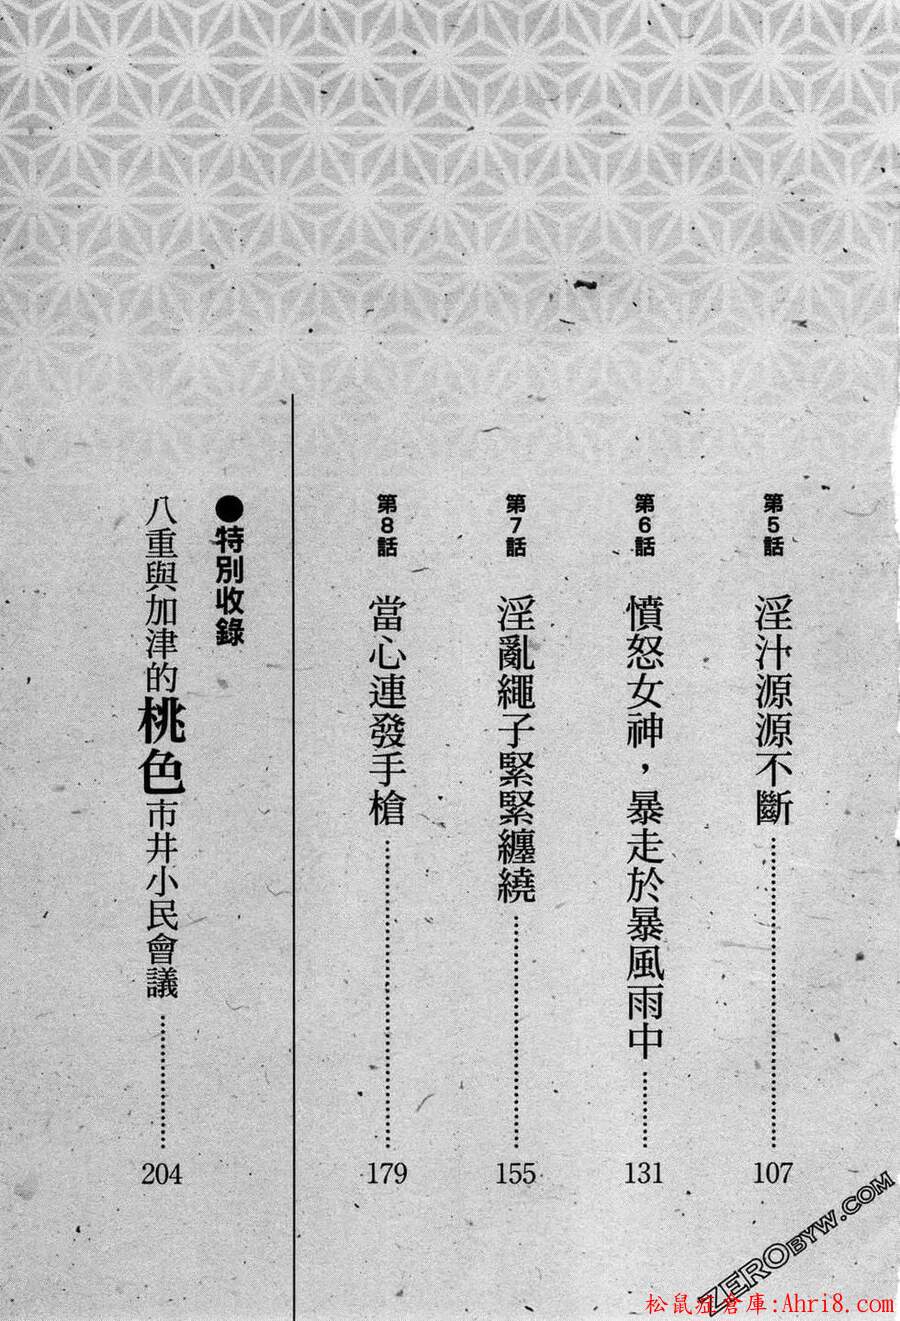 第5話 淫汁源源不斷 107
第6話 憤怒女神，暴走於暴風雨中 131
第7話 淫亂繩子緊緊纏繞 155
第8話 當心連發手槍 179
●特別收錄
八重與加津的桃色市井小民會議 204
ZEROBYW.COM
松鼠症倉庫:Ahri8.com